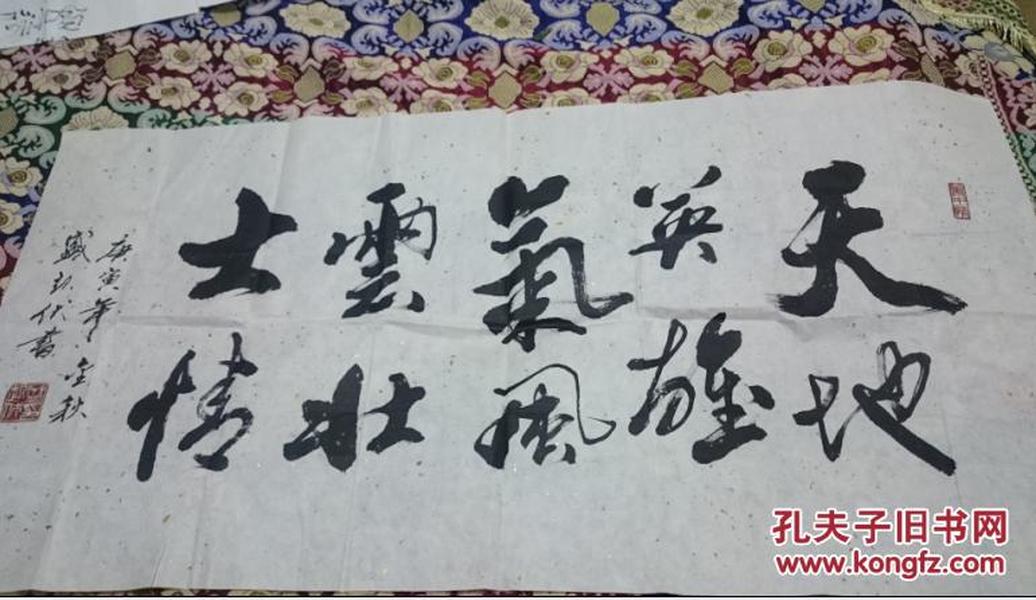 天地
英雄
氣風
雲壯
士情
庚寅年金秋
孔夫子旧书网
www.kongfz.com